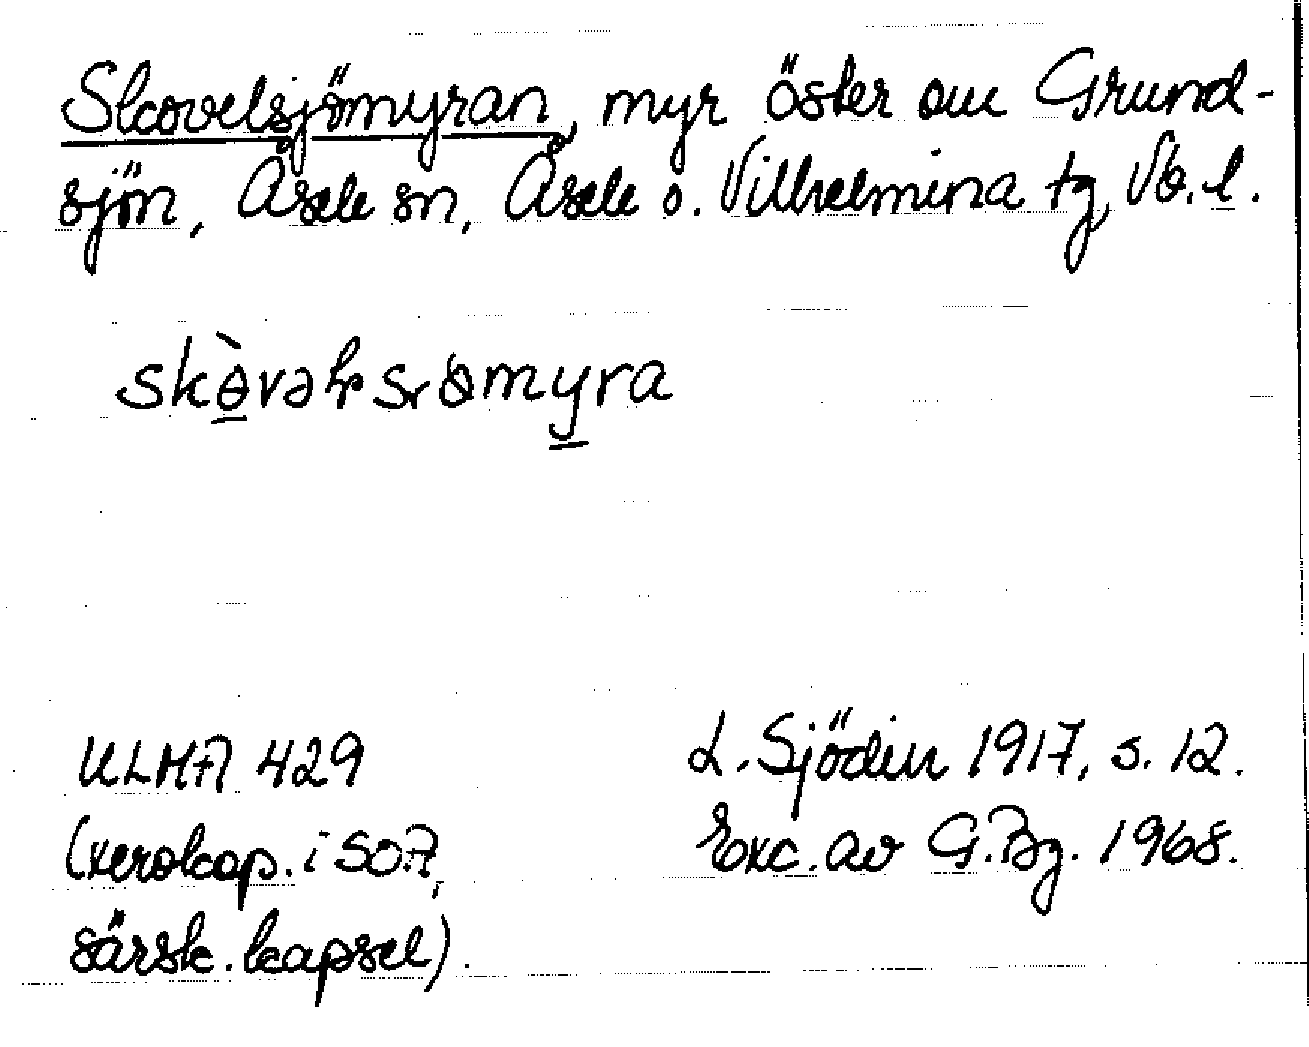 Skovelsjömyran, myr öster om Grund-
sjön, Åsele sn, Åsele o. Vilhelmina tg, Vb. l.
ULMA 429
L. Sjödin 1917, s. 12.
(xerokop. i SOA,
Exc. av G. Bg. 1968.
särsk. kapsel).